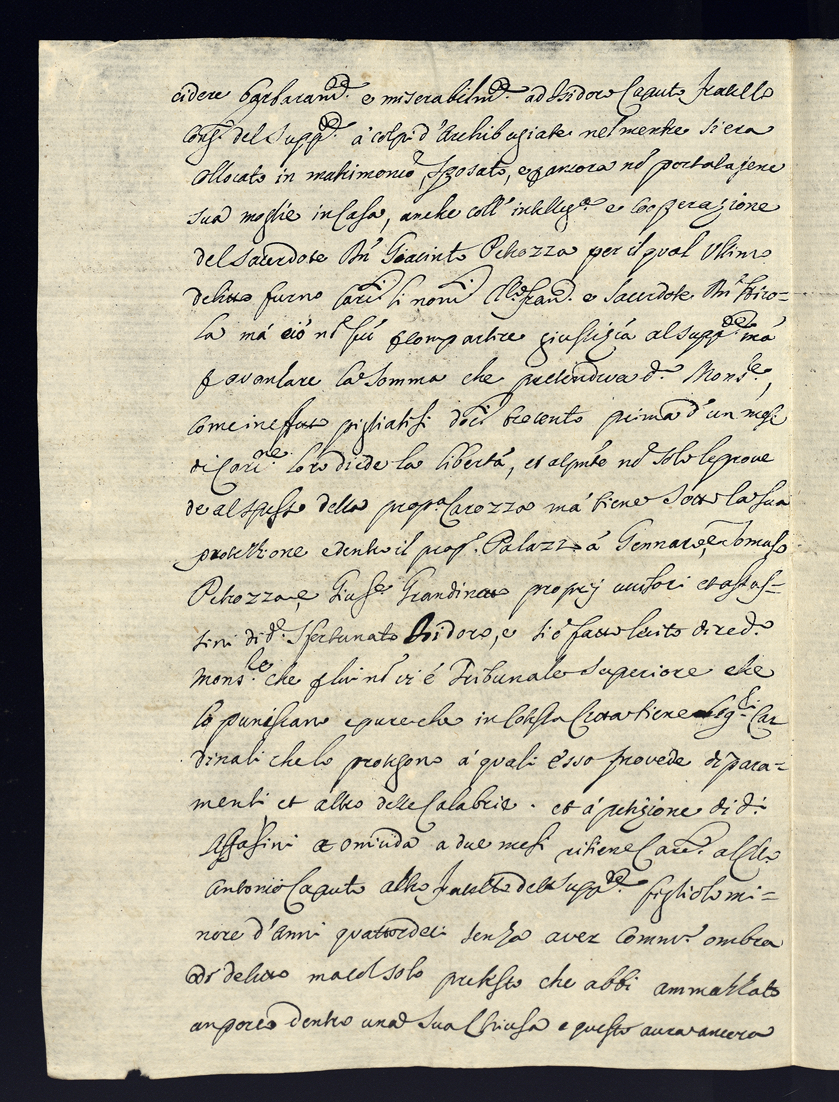 cidere barbaram.te e miserabilm.te ad Isidoro Caputo fratello
Cong. del Supp.te à colpi d'Archibugiate nel mentre si era
collocato in matrimonio, sposato, e ancora nō portata jene
sua moglie in Casa, anche coll' intellig.a e Cooperazione
del Sacerdote Dn' Giacinto Petrozza per il qual Ultimo
delitto furno Carc.ti li nom.ti e Sacerdote Dn'
la má ció nō fú p compartire giustizia al supp.te má
p avantare la somma che pretendeva d.o Mons.re,
come in effetto pigliatisi doc.ti trecento prima d'un mese
di Carc.ne loro diede la libertà, et al pnte nō solo le prove
de al spesso della prop.a Carozza má tiene sotto la sua
protettione e dentro il prop.o Palazzo á Gennaro, e Tomaso
Petrozza, e Gius.e Grandinetti proprij uccisori et assas=
sini di d.o Sfortunato Isidoro, e si é fatto lecito dire d.o
Mons.re che p lui nō vi é Tribunale Superiore che
lo puniscano e pure che in Cotesta Citta tiene Sig.ri Car
dinali che lo protegono á quali esso provede di para=
menti et altro delle Calabrie. et á petizione di d.i
Assassini et omicida a due mesi ritiene Carc.to al Ch.o
Antonio Caputo altro fratello del Supp.te figliolo mi=
nore d'Anni quattordeci senza aver Comm.o ombra
di delitto ma col solo pretesto che abbi ammazzato
un porco dentro una sua Chiusa e questo aura ancora